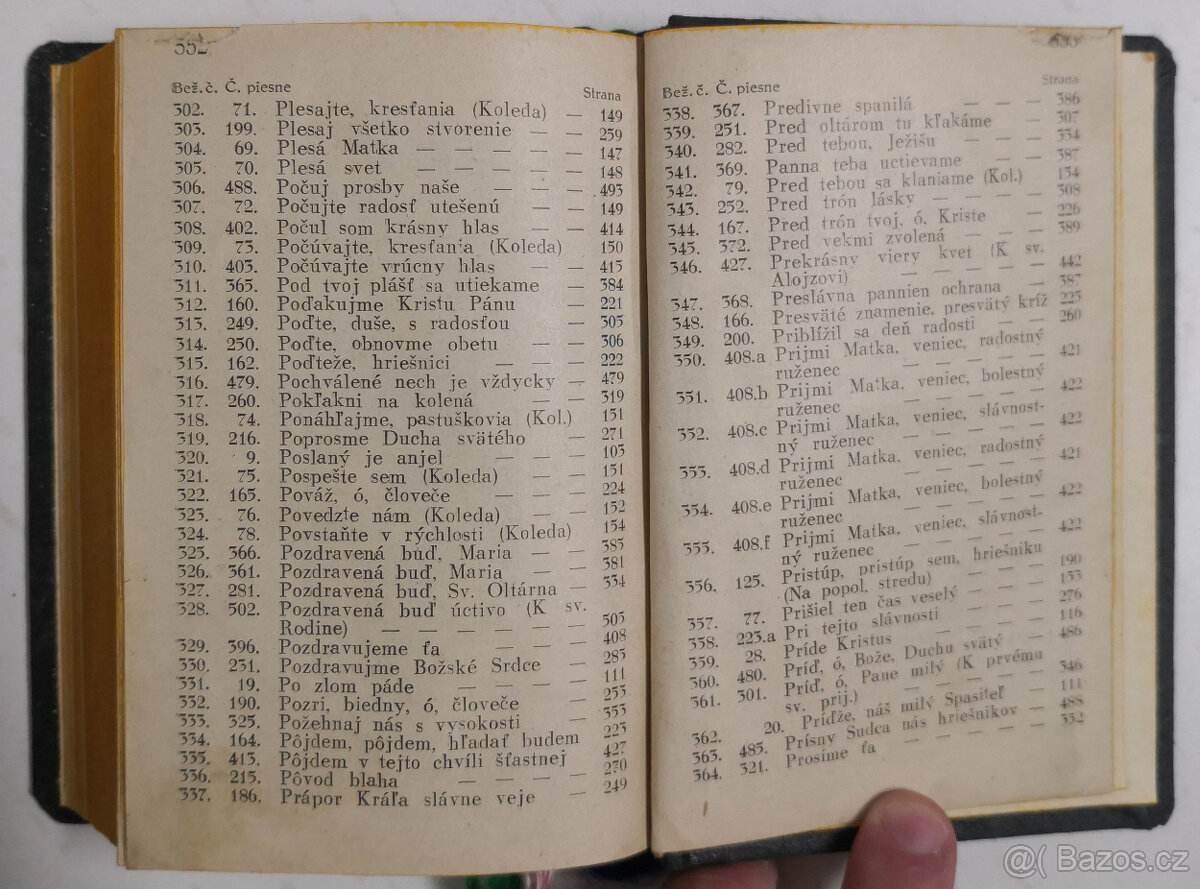 552
Bež.č. Č. piesne Strana
302. 71. Plesajte, kresťania (Koleda) — 149
303. 199. Plesaj všetko stvorenie — — 259
304. 69. Plesá Matka — — — — — 147
305. 70. Plesá svet — — — — — 148
306. 488. Počuj prosby naše — — — 493
307. 72. Počujte radosť utešenú — — 149
308. 402. Počul som krásny hlas — — 414
309. 73. Počúvajte, kresťania (Koleda) 150
310. 403. Počúvajte vrúcny hlas — — 415
311. 365. Pod tvoj plášť sa utiekame — 384
312. 160. Poďakujme Kristu Pánu — 221
313. 249. Poďte, duše, s radosťou — 305
314. 250. Poďte, obnovme obetu — — 306
315. 162. Poďteže, hriešnici — — — 222
316. 479. Pochválené nech je vždycky — 479
317. 260. Pokľakni na kolená — — 319
318. 74. Ponáhľajme, pastuškovia (Kol.) 151
319. 216. Poprosme Ducha svätého — 271
320. 9. Poslaný je anjel — — — 103
321. 75. Pospešte sem (Koleda) — — 151
322. 165. Považ, ó, človeče — — — 224
323. 76. Povedzte nám (Koleda) — — 152
324. 78. Povstaňte v rýchlosti (Koleda) 154
325. 366. Pozdravená buď, Maria — — 385
326. 361. Pozdravená buď, Maria — — 381
327. 281. Pozdravená buď, Sv. Oltárna — 334
328. 502. Pozdravená buď úctivo (K sv.
Rodine) — — — — — — 505
329. 396. Pozdravujeme ťa — — — 408
330. 231. Pozdravujme Božské Srdce — 283
331. 19. Po zlom páde — — — — 111
332. 190. Pozri, biedny, ó, človeče — 253
333. 325. Požehnaj nás s vysokosti — 353
334. 164. Pôjdem, pôjdem, hľadať budem 223
335. 413. Pôjdem v tejto chvíli šťastnej 427
336. 215. Pôvod blaha — — — — 270
337. 186. Prápor Kráľa slávne veje — 249
Bež.č. Č. piesne Strana
338. 367. Predivne spanilá — — — 386
339. 251. Pred oltárom tu kľakáme — 307
340. 282. Pred tebou, Ježišu — — 334
341. 369. Panna teba uctievame — — 387
342. 79. Pred tebou sa klaniame (Kol.) 154
343. 252. Pred trón lásky — — — 308
344. 167. Pred trón tvoj, ó, Kriste — 226
345. 372. Pred vekmi zvolená — — 389
346. 427. Prekrásny viery kvet (K sv.
Alojzovi) — — — — — 442
347. 368. Preslávna pannien ochrana — 387
348. 166. Presväté znamenie, presvätý kríž 225
349. 200. Priblížil sa deň radosti — — 260
350. 408.a Prijmi Matka, veniec, radostný
ruženec — — — — 421
351. 408.b Prijmi Matka, veniec, bolestný
ruženec — — — — 422
352. 408.c Prijmi Matka, veniec, slávnost-
ný ruženec — — — — 422
353. 408.d Prijmi Matka, veniec, radostný
ruženec — — — — 421
354. 408.e Prijmi Matka, veniec, bolestný
ruženec — — — — 422
355. 408.f Prijmi Matka, veniec, slávnost-
ný ruženec — — — — 422
356. 125. Pristúp, pristúp sem, hriešniku
(Na popol. stredu) — — — 190
357. 77. Prišiel ten čas veselý — — 153
358. 223.a Pri tejto slávnosti — — — 276
359. 28. Príde Kristus — — — — 116
360. 480. Príď, ó, Bože, Duchu svätý — 486
361. 301. Príď, ó, Pane milý (K prvému
sv. prij.) — — — — — 346
362. 20. Príďže, náš milý Spasiteľ — 111
363. 483. Prísny Sudca nás hriešnikov — 488
364. 321. Prosíme ťa — — — — 352
@( Bazos.cz